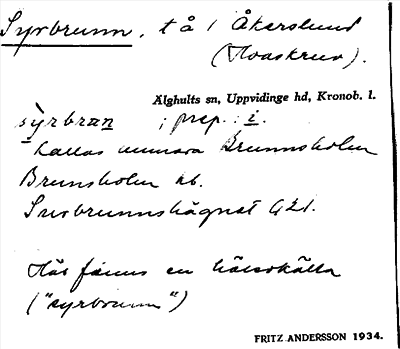 Syrbrunn, t å i Åkerslund
(Hvaskruv).
Älghults sn, Uppvidinge hd, Kronob. l.
sỳrbran ; prep.: i.
kallas numera Brunnsholm
Brunsholm kb.
Surbrunnshägnet G21.
Här finns en hälsokälla
("syrbrunn")
FRITZ ANDERSSON 1934.